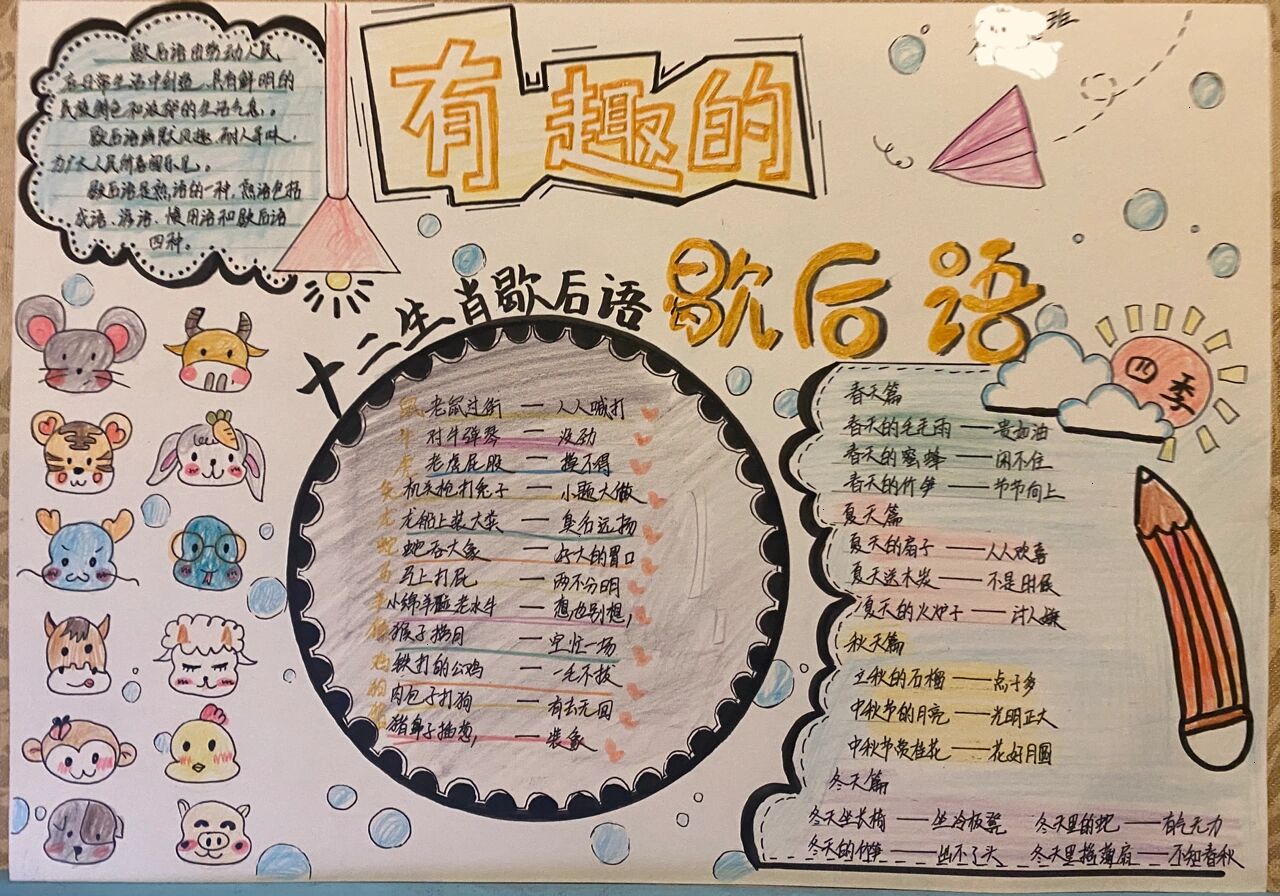 歇后语由劳动人民
在日常生活中创造,具有鲜明的
民族特色和浓郁的生活气息。
歇后语幽默风趣,耐人寻味,
为广大人民所喜闻乐见。
歇后语是熟语的一种,熟语包括
成语、谚语、惯用语和歇后语
四种。
有趣的
班
歇后语
十二生肖歇后语
鼠 老鼠过街 — 人人喊打
牛 对牛弹琴 — 没劲
虎 老虎屁股 — 摸不得
兔 机关枪打兔子 — 小题大做
龙 龙船上装大粪 — 臭名远扬
蛇 蛇吞大象 — 好大的胃口
马上打屁 — 两不分明
羊 小绵羊 老水牛 — 想也别想,
猴 猴子捞月 — 空忙一场
鸡 铁打的公鸡 — 一毛不拔
狗 肉包子打狗 — 有去无回
猪 猪鼻子插葱, — 装象
四季
春天篇
春天的毛毛雨 — 贵如油
春天的蜜蜂 — 闲不住
春天的竹笋 — 节节向上
夏天篇
夏天的扇子 — 人人欢喜
夏天送木炭 — 不是时候
夏天的火炉子 — 讨人嫌
秋天篇
立秋的石榴 — 点子多
中秋节的月亮 — 光明正大
中秋节赏桂花 — 花好月圆
冬天篇
冬天坐长椅 — 坐冷板凳 冬天里的蛇 — 有气无力
冬天的竹笋 — 出不了头 冬天里摇蒲扇 — 不知春秋